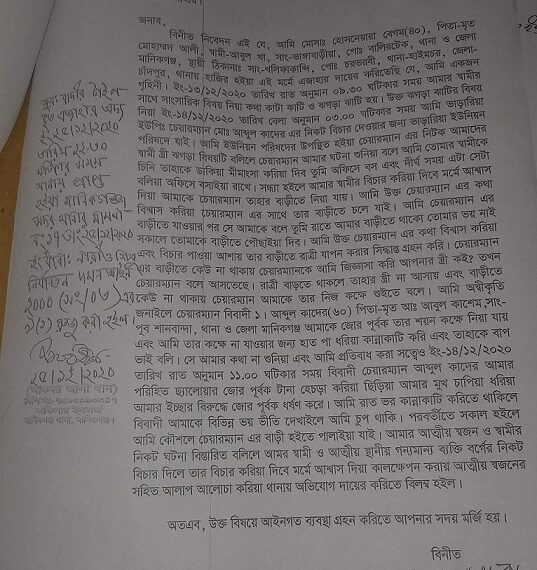 জনাব,
বিনীত নিবেদন এই যে, আমি মোসাঃ হোসনেয়ারা বেগম(৪০), পিতা-মৃত
মোহাম্মদ আলী, স্বামী-আবুল খা, সাং-ভাঙ্গাবাড়ীয়া, পোঃ বালিরটেক, থানা ও জেলা
মানিকগঞ্জ, স্থায়ী ঠিকানাঃ সাং-খলিফাকান্দি, পোঃ চরভরবী, থানা-হাইমচর, জেলা-
চাঁদপুর, থানায় হাজির হইয়া এই মর্মে এজাহার দায়ের করিতেছি যে, আমি একজন
গৃহিনী। ইং-১৩/১২/২০২০ তারিখ রাত অনুমান ০৯.৩০ ঘটিকার সময় আমার স্বামীর
সাথে সাংসারিক বিষয় নিয়া কথা কাটা কাটি ও ঝগড়া ঝাটি হয়। উক্ত ঝগড়া ঝাটির বিষয়
নিয়া ইং-১৪/১২/২০২০ তারিখ বেলা অনুমান ০৩.০০ ঘটিকার সময় আমি ভাড়ারিয়া
ইউপিঃ চেয়ারম্যান মোঃ আব্দুল কাদের এর নিকট বিচার দেওয়ার জন্য ভাড়ারিয়া ইউনিয়ন
পরিষদে যাই। আমি ইউনিয়ন পরিষদের উপস্থিত হইয়া চেয়ারম্যান এর নিটক আমাদের
স্বামী স্ত্রী ঝগড়া বিষয়টি বলিলে চেয়ারম্যান আমার ঘটনা শুনিয়া বলে আমি তোমার স্বামীকে
চিনি তাহাকে ডাকিয়া মীমাংসা করিয়া দিব তুমি অফিসে বস এবং দীর্ঘ সময় এটা সেটা
বলিয়া অফিসে বসাইয়া রাখে। সন্ধ্যা হইলে আমার স্বামীর বিচার করিয়া দিবে মর্মে আশ্বাস
দিয়া আমাকে চেয়ারম্যান তাহার বাড়ীতে নিয়া যায়। আমি উক্ত চেয়ারম্যান এর কথা
বিশ্বাস করিয়া চেয়ারম্যান এর সাথে তার বাড়ীতে চলে যাই। আমি চেয়ারম্যান এর
বাড়ীতে যাওয়ার পর সে আমাকে বলে তুমি রাতে আমার বাড়ীতে থাকো তোমার ভয় নাই
সকালে তোমাকে বাড়ীতে পৌছাইয়া দিব। আমি উক্ত চেয়ারম্যান এর কথা বিশ্বাস করিয়া
এবং বিচার পাওয়া আশায় তার বাড়ীতে রাত্রী যাপন করার সিদ্ধান্ত গ্রহন করি। চেয়ারম্যান
এর বাড়ীতে কেউ না থাকায় চেয়ারম্যানকে আমি জিজ্ঞাসা করি আপনার স্ত্রী কই? তখন
চেয়ারম্যান বলে আসতেছে। রাত্রী বাড়তে থাকলে তাহার স্ত্রী না আসায় এবং বাড়ীতে
কেউ না থাকায় চেয়ারম্যান আমাকে তার নিজ কক্ষে শুইতে বলে। আমি অস্বীকৃতি
জনাইলে চেয়ারম্যান বিবাদী ১। আব্দুল কাদের(৬০) পিতা-মৃত আঃ আবুল কাশেম, সাং-
পূর্ব শানবান্দা, থানা ও জেলা মানিকগঞ্জ আমাকে জোর পূর্বক তার শয়ন কক্ষে নিয়া যায়
এবং আমি তার কক্ষে না যাওয়ার জন্য হাত পা ধরিয়া কান্নাকাটি করি এবং তাহাকে বাপ
ভাই বলি। সে আমার কথা না শুনিয়া এবং আমি প্রতিবাধ করা সত্ত্বেও ইং-১৪/১২/২০২০
তারিখ রাত অনুমান ১১.০০ ঘটিকার সময় বিবাদী চেয়ারম্যান আব্দুল কাদের আমার
পরিহিত ছ্যালোয়ার জোর পূর্বক টানা হেচড়া করিয়া ছিড়িয়া আমার মুখ চাপিয়া ধরিয়া
আমার ইচ্ছার বিরুদ্ধে জোর পূর্বক ধর্ষণ করে। আমি রাত ভর কান্নাকাটি করিতে থাকিলে
বিবাদী আমাকে বিভিন্ন ভয় ভীতি দেখাইলে আমি চুপ থাকি। পরবর্তীতে সকাল হইলে
আমি কৌশলে চেয়ারম্যান এর বাড়ী হইতে পালাইয়া যাই। আমার আত্মীয় স্বজন ও স্বামীর
নিকট ঘটনা বিস্তারিত বলিলে আমর স্বামী ও আত্মীয় স্থানীয় গন্যমান্য ব্যক্তি বর্গের নিকট
বিচার দিলে তার বিচার করিয়া দিবে মর্মে আশ্বাস দিয়া কালক্ষেপন করায় আত্মীয় স্বজনের
সহিত আলাপ আলোচা করিয়া থানায় অভিযোগ দায়ের করিতে বিলম্ব হইল।
অতএব, উক্ত বিষয়ে আইনগত ব্যবস্থা গ্রহন করিতে আপনার সদয় মর্জি হয়।
বিনীত
২৫/১২/২০২০